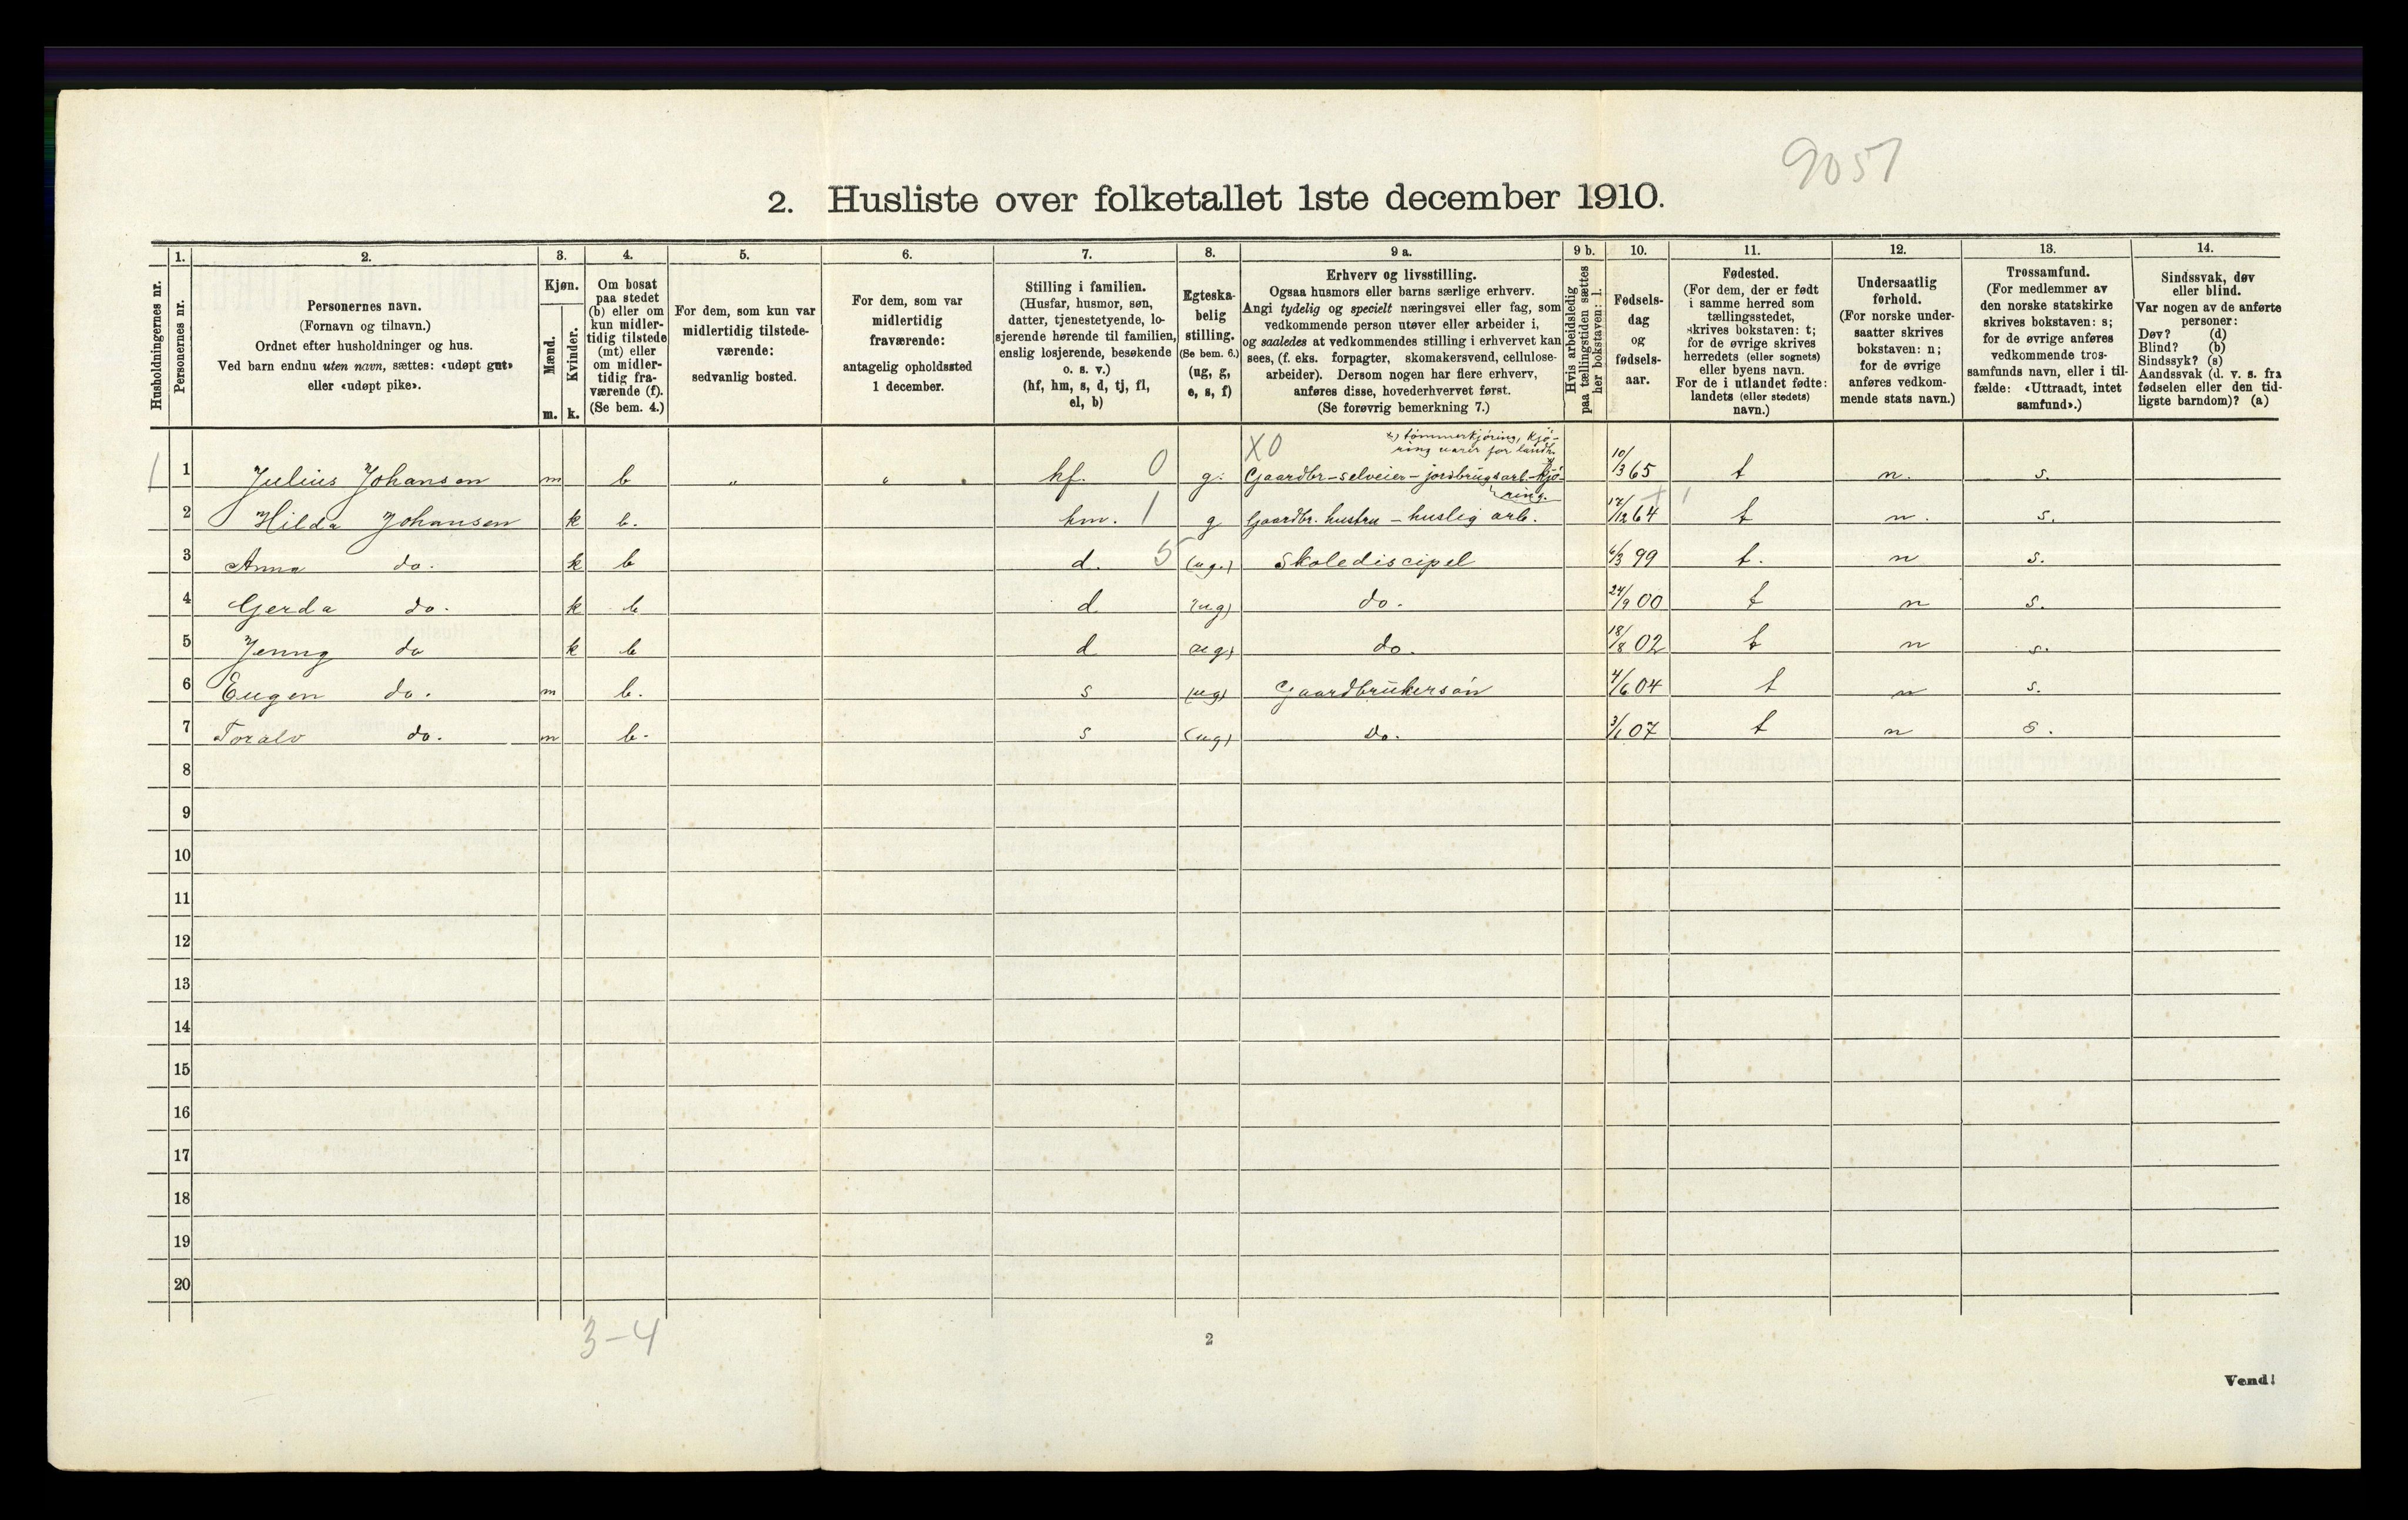 9051
2. Husliste over folketallet 1ste december 1910.
Husholdningernes nr.
1. Personernes nr.
2. Personernes navn.
(Fornavn og tilnavn.)
Ordnet efter husholdninger og hus.
Ved barn endnu uten navn, sættes: «udøpt gut»
eller «udøpt pike».
3. Kjøn.
Mænd. m.
Kvinder. k.
4. Om bosat
paa stedet
(b) eller om
kun midler-
tidig tilstede
(mt) eller
om midler-
tidig fra-
værende (f).
(Se bem. 4.)
5. For dem, som kun var
midlertidig tilstede-
værende:
sedvanlig bosted.
6. For dem, som var
midlertidig
fraværende:
antagelig opholdssted
1 december.
7. Stilling i familien.
(Husfar, husmor, søn,
datter, tjenestetyende, lo-
sjerende hørende til familien,
enslig losjerende, besøkende
o. s. v.)
(hf, hm, s, d, tj, fl,
el, b)
8. Egteska-
belig
stilling.
(Se bem. 6.)
(ug, g,
e, s, f)
9 a. Erhverv og livsstilling.
Ogsaa husmors eller barns særlige erhverv.
Angi tydelig og specielt næringsvei eller fag, som
vedkommende person utøver eller arbeider i,
og saaledes at vedkommendes stilling i erhvervet kan
sees, (f. eks. forpagter, skomakersvend, cellulose-
arbeider). Dersom nogen har flere erhverv,
anføres disse, hovederhvervet først.
(Se forøvrig bemerkning 7.)
9 b. Hvis arbeidsledig
paa tællingstiden sættes
her bokstaven: l.
10. Fødsels-
dag
og
fødsels-
aar.
11. Fødested.
(For dem, der er født
i samme herred som
tællingsstedet,
skrives bokstaven: t;
for de øvrige skrives
herredets (eller sognets)
eller byens navn.
For de i utlandet fødte:
landets (eller stedets)
navn.)
12. Undersaatlig
forhold.
(For norske under-
saatter skrives
bokstaven: n;
for de øvrige
anføres vedkom-
mende stats navn.)
13. Trossamfund.
(For medlemmer av
den norske statskirke
skrives bokstaven: s;
for de øvrige anføres
vedkommende tros-
samfunds navn, eller i til-
fælde: «Uttraadt, intet
samfund».)
14. Sindssvak, døv
eller blind.
Var nogen av de anførte
personer:
Døv? (d)
Blind? (b)
Sindssyk? (s)
Aandssvak (d. v. s. fra
fødselen eller den tid-
ligste barndom)? (a)
X0 x) tömmerkjöring, kjö-
ring varer for landh.
1 1 Julius Johansen m b " " hf. 0 g. Gaardbr-selveier-jordbrugsarb.-kjö- 10/3 65 t n. s.
ring.
2 Hilda Johansen k b. hm. 1 g Gaardbr. hustru - huslig arb. 17/12 64 t n. s.
3 Anna do. k b d. 5 (ug.) Skolediscipel 6/3 99 t. n s.
4 Gerda do. k b d (ug) do. 24/9 00 t n s.
5 Jenny do k b d (ug) do. 18/8 02 t n s.
6 Eugen do. m b. s (ug) Gaardbrukersön 4/6 04 t n s.
7 Toralv do. m b. s (ug) Do. 3/1 07 t n s.
8
9
10
11
12
13
14
15
16
17
18
19
20
3-4
2
Vend!